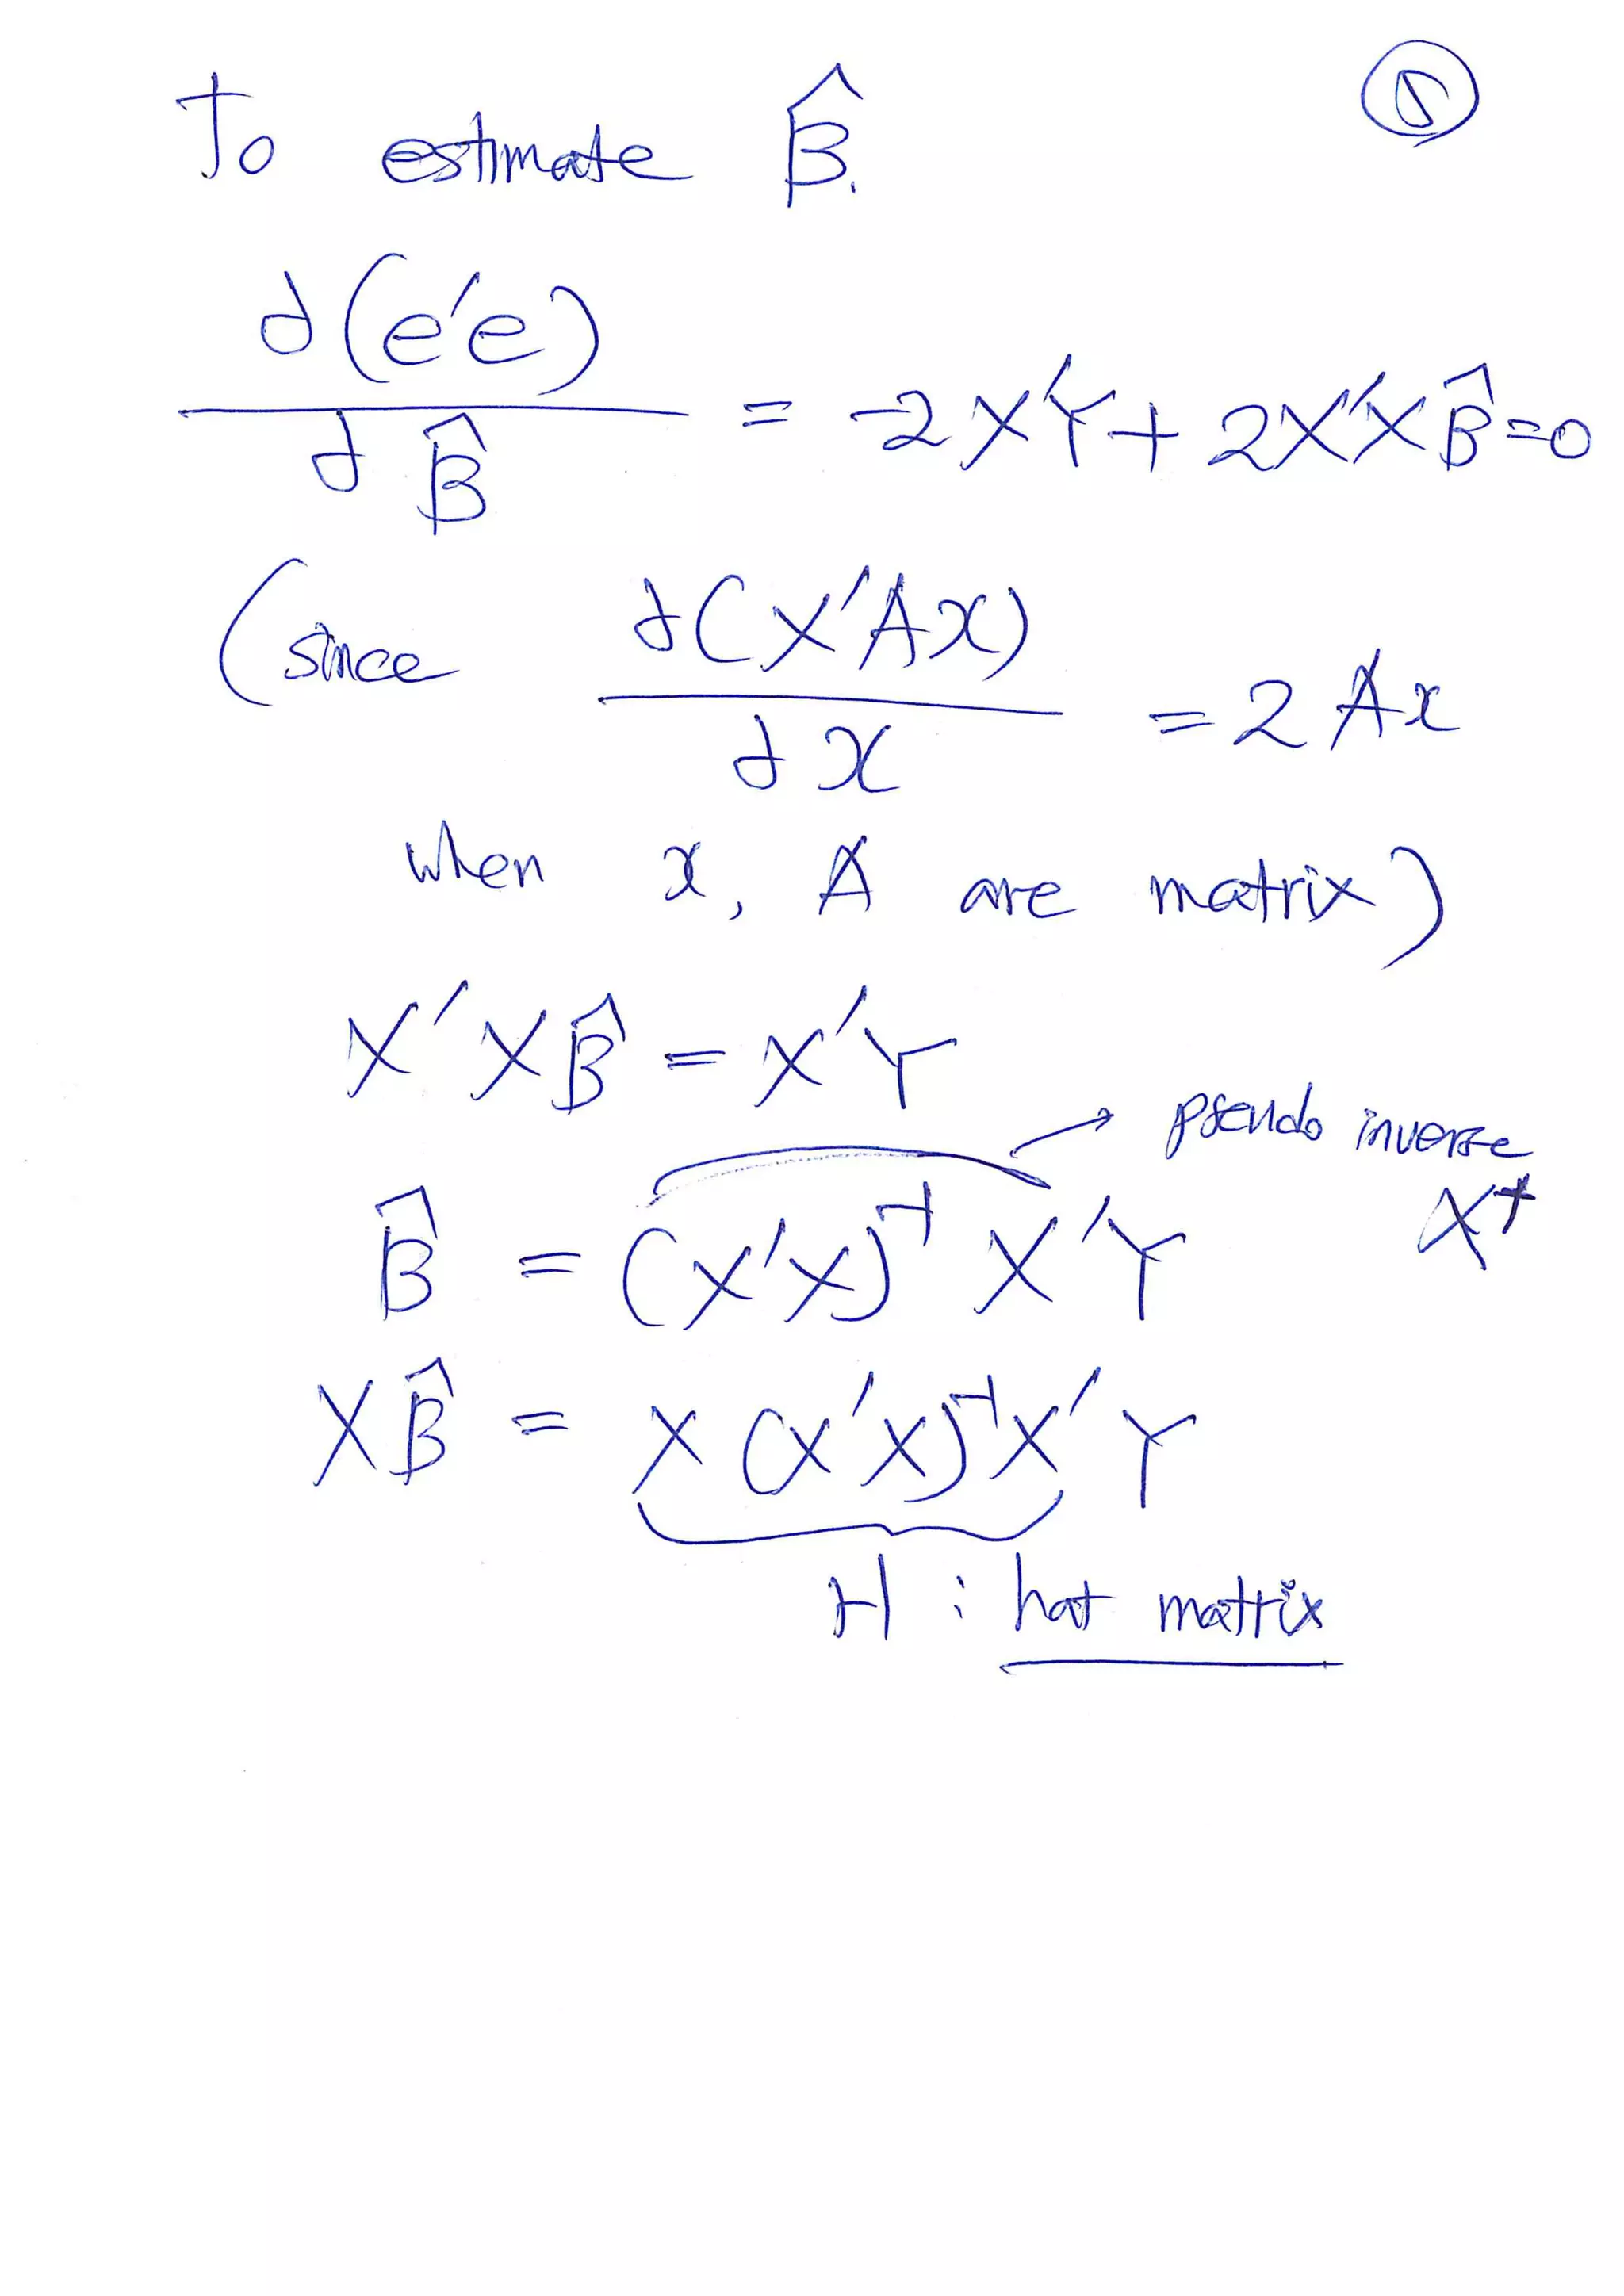 ⑤
To estimate β̂.
∂(e'e) / ∂β̂ = -2X'Y + 2X'Xβ̂ = 0
(since ∂(x'Ax) / ∂x = 2Ax
when x, A are matrix)
X'Xβ̂ = X'Y
→ pseudo inverse
X⁺
β̂ = (X'X)⁻¹ X'Y
Xβ̂ = X(X'X)⁻¹X'Y
H : hat matrix